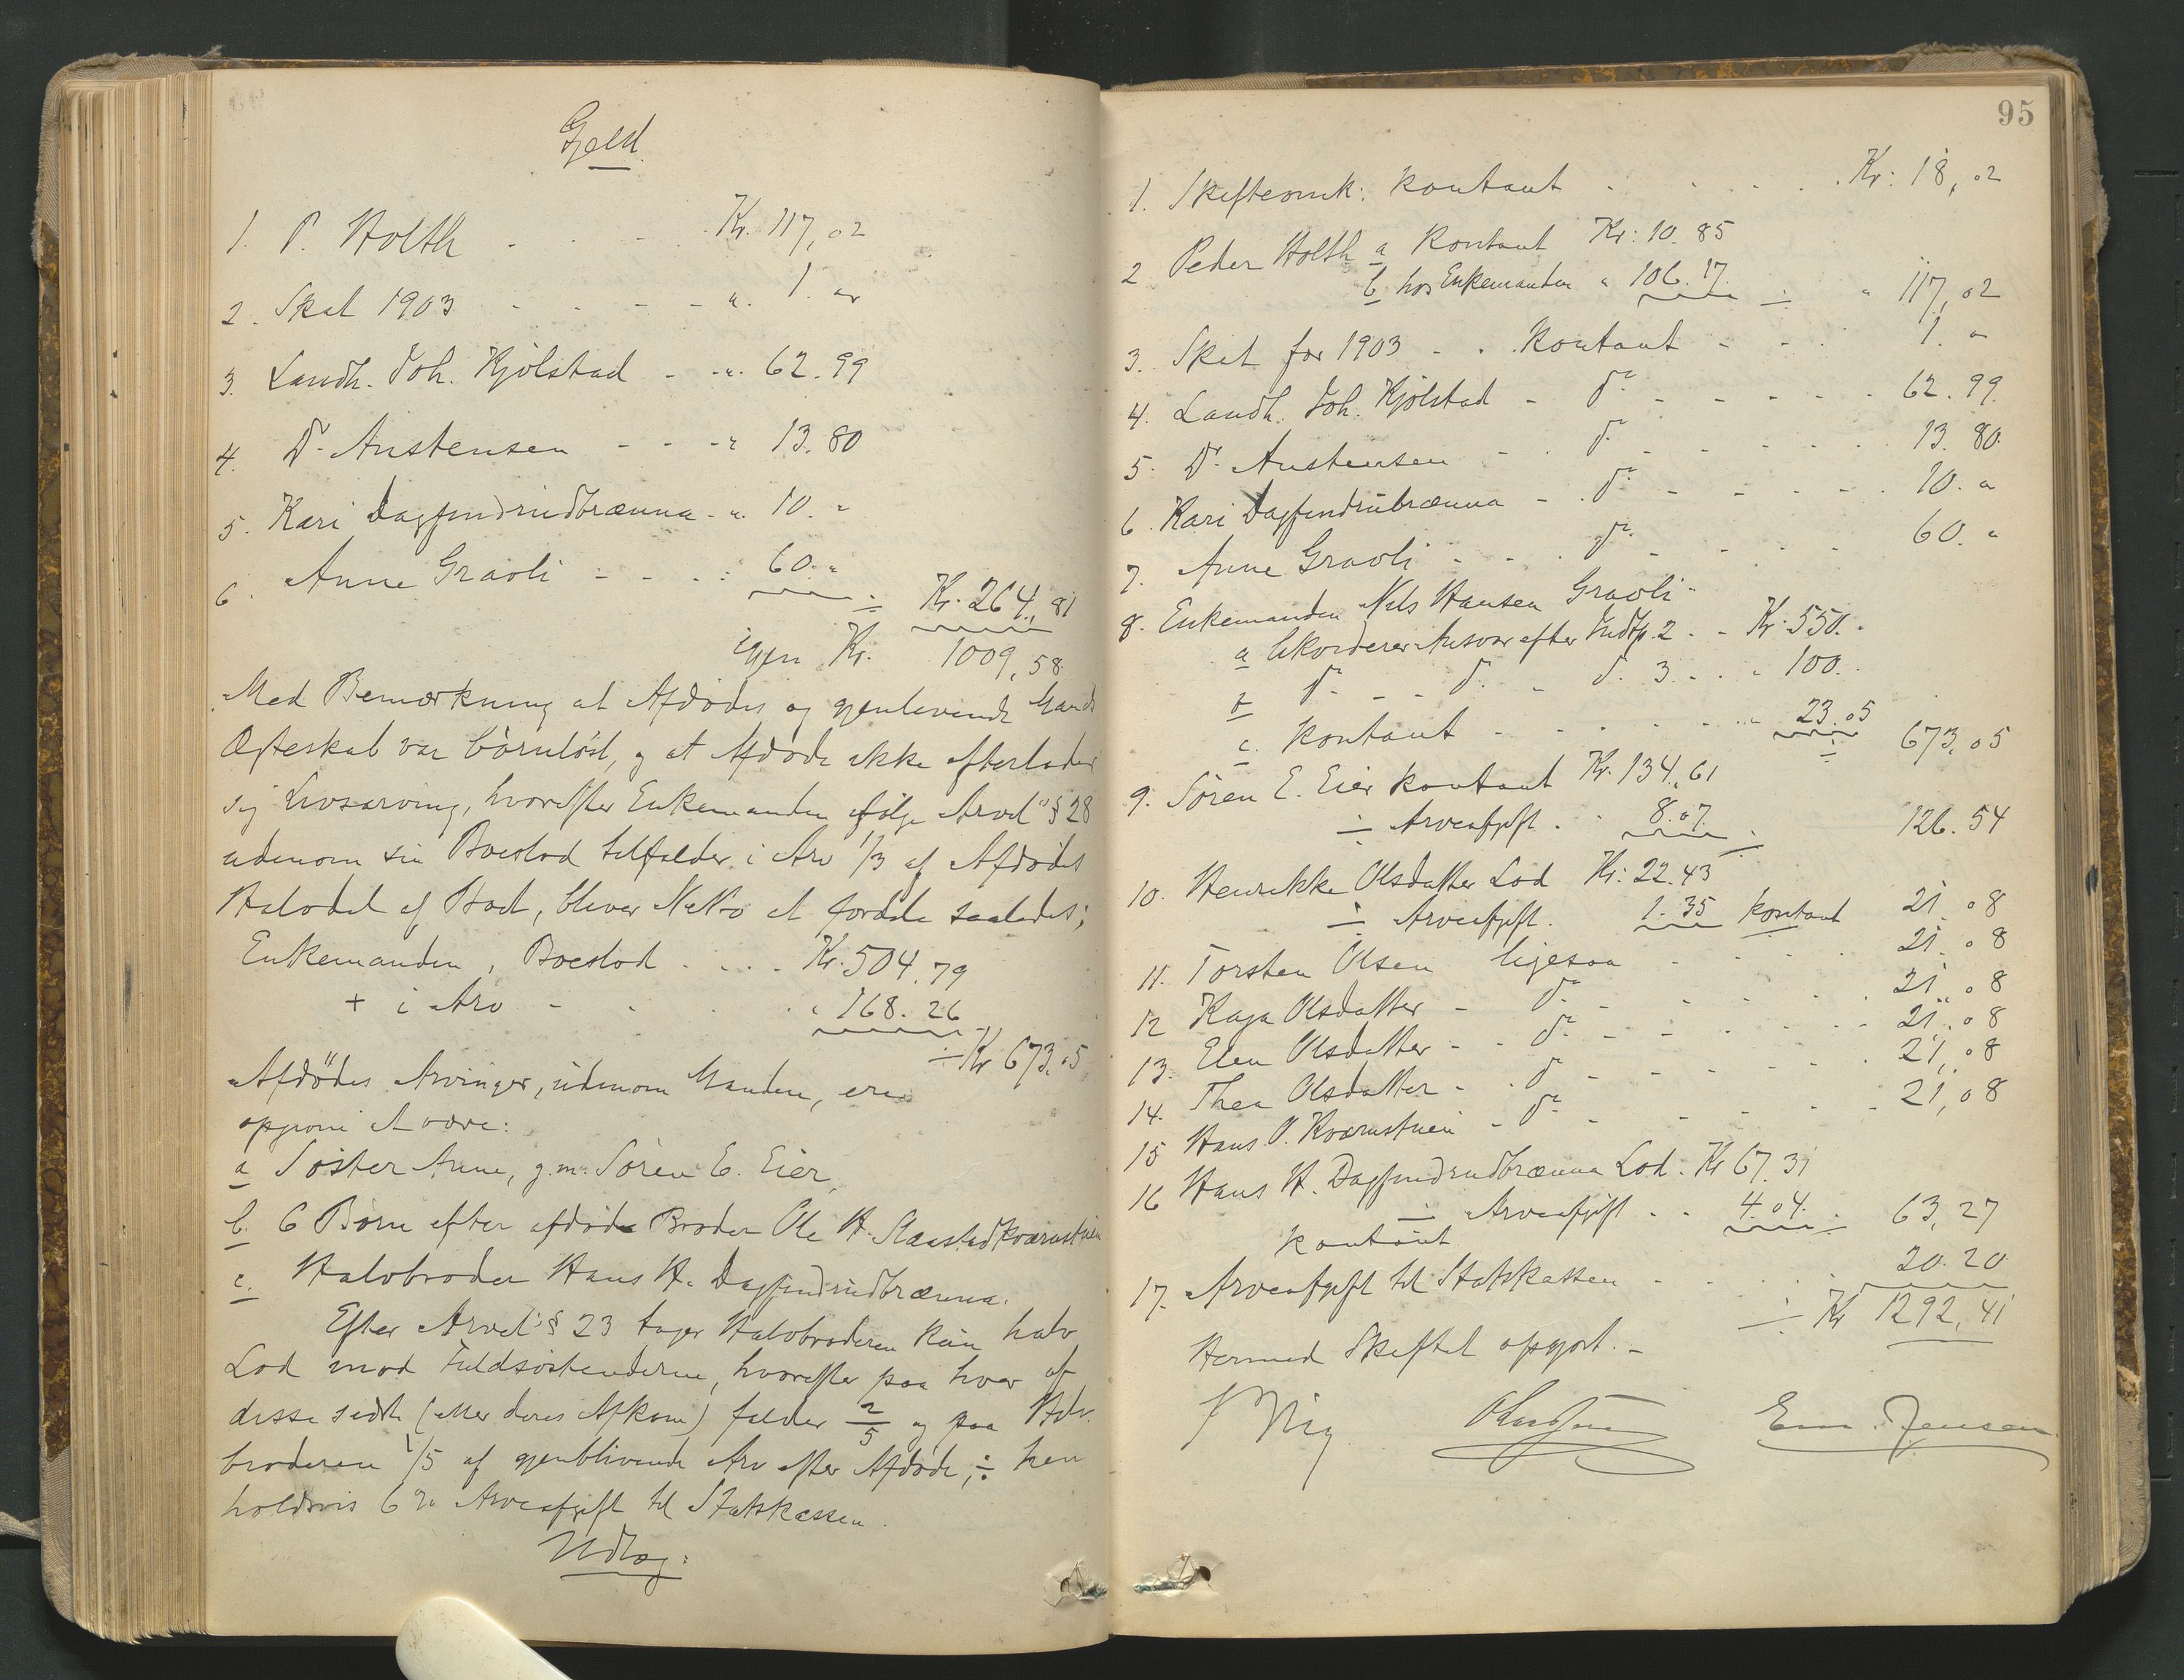 Gjeld.
1. P. Holth . . . . Kr. 117,02
2. Skat 1903 - - - - " 1. "
3. Landh. Joh. Kjölstad - - " 62.99
4. Dr. Austensen - - - " 13.80
5. Kari Dagfindrudbrænna - " 10. "
6. Anne Gravli - - - : 60. "
÷ Kr. 264,81
igjen Kr. 1009,58
Med Bemærkning at Afdødes og gjenlevende Mands
Ægteskab var börnlöst, og at Afdøde ikke efterlader
sig Livsarving, hvorefter Enkemanden ifölge Arvel. § 28
udenom sin Boeslod tilfalder i Arv 1/3 af Afdødes
Halvdel af Boet, bliver Netto at fordele saaledes;
Enkemanden, Boeslod . . . . Kr. 504.79
+ i Arv - . . . " 168.26
÷ Kr 673,05
Afdödes Arvinger, udenom Manden, ere
opgivne at være:
a Söster Anne, g.m. Sören E. Eier,
b. 6 Börn efter afdøde Broder Ole H.
c. Halvbroder Hans H. Dagfindrudbrænna.
Efter Arvel. § 23 tager Halvbroderen kun halv
Lod mod Fuldsöskenderne, hvorefter paa hver af
disse sidste (eller deres Afkom) falder 2/5 og paa Halv-
broderen 1/5 af gjenblivende Arv efter Afdøde, ÷ hen
holdsvis 6 % Arveafgift til Statskassen.
Udlæg:
95
1. Skifteomk: kontant . . . . . Kr: 18,02
2 Peder Holth a kontant Kr: 10.85
b hos Enkemanden " 106.17. ÷ " 117,02
3. Skat for 1903 - . kontant - - . 1. "
4. Landh. Joh. Kjölstad - do - - - - - 62.99
5. Dr. Austensen - . do - - - - . 13.80
6. Kari Dagfindrubrænna - . do - - - - - . 10. "
7. Anne Gravli - - . do - - - - 60. "
8. Enkemanden Nils Hansen Gravli -
a Akorderer Ansvar efter Indtp. 2 . - Kr. 550. "
b do - - do - do 3 - . . " 100. .
c. kontant - . . - . . " 23.05 ÷ 673,05
9. Sören E. Eier kontant Kr. 134,61
÷ Arveafgift . . 8.07. ÷ 126.54
10. Henrikke Olsdatter Lod Kr: 22.43
÷ Arveafgift. 1.35 kontant 21.08
11. Torsten Olsen ligesaa - . . . . 21.08
12 Kaja Olsdatter - do - - - - - . 21,08
13. Elen Olsdatter - - do - - - - - - - 21,08
14. Thea Olsdatter - . do - - - - - . 21,08
15 Hans O. Kværnstuen - do - - - - - 21,08
16 Hans H. Dagfindrudbrænna Lod. Kr 67.31
÷ Arveafgift . . 4.04. ÷ 63,27
kontant
17. Arveafgift til Statskassen - . . . . 20.20
÷ Kr 1292,41
Hermed Skiftet opgjort. -
Em. Jensen